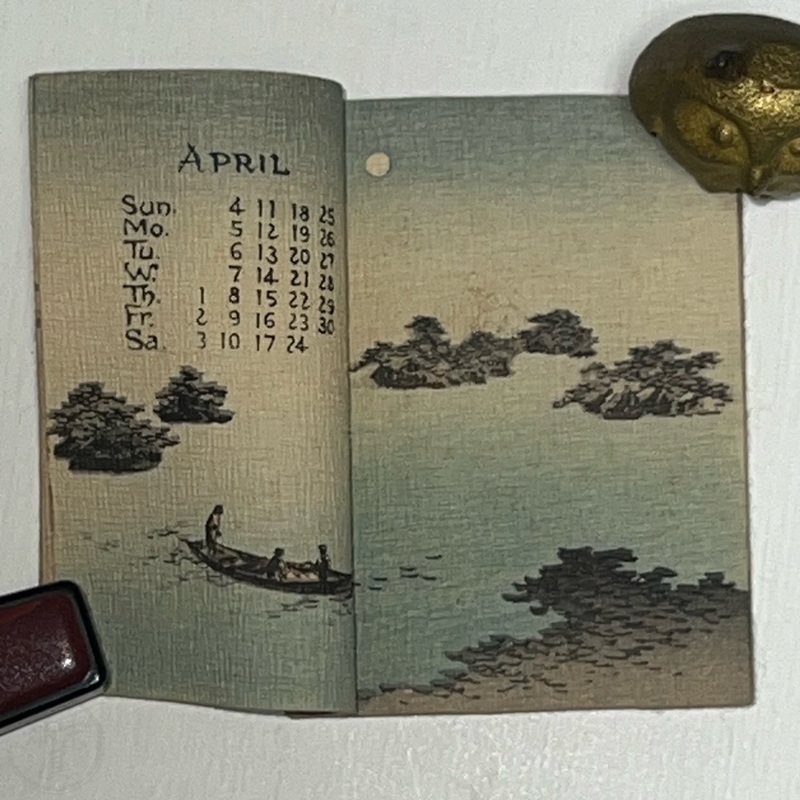 APRIL
Sun. 4 11 18 25
Mo. 5 12 19 26
Tu. 6 13 20 27
W. 7 14 21 28
Th. 1 8 15 22 29
Fr. 2 9 16 23 30
Sa. 3 10 17 24